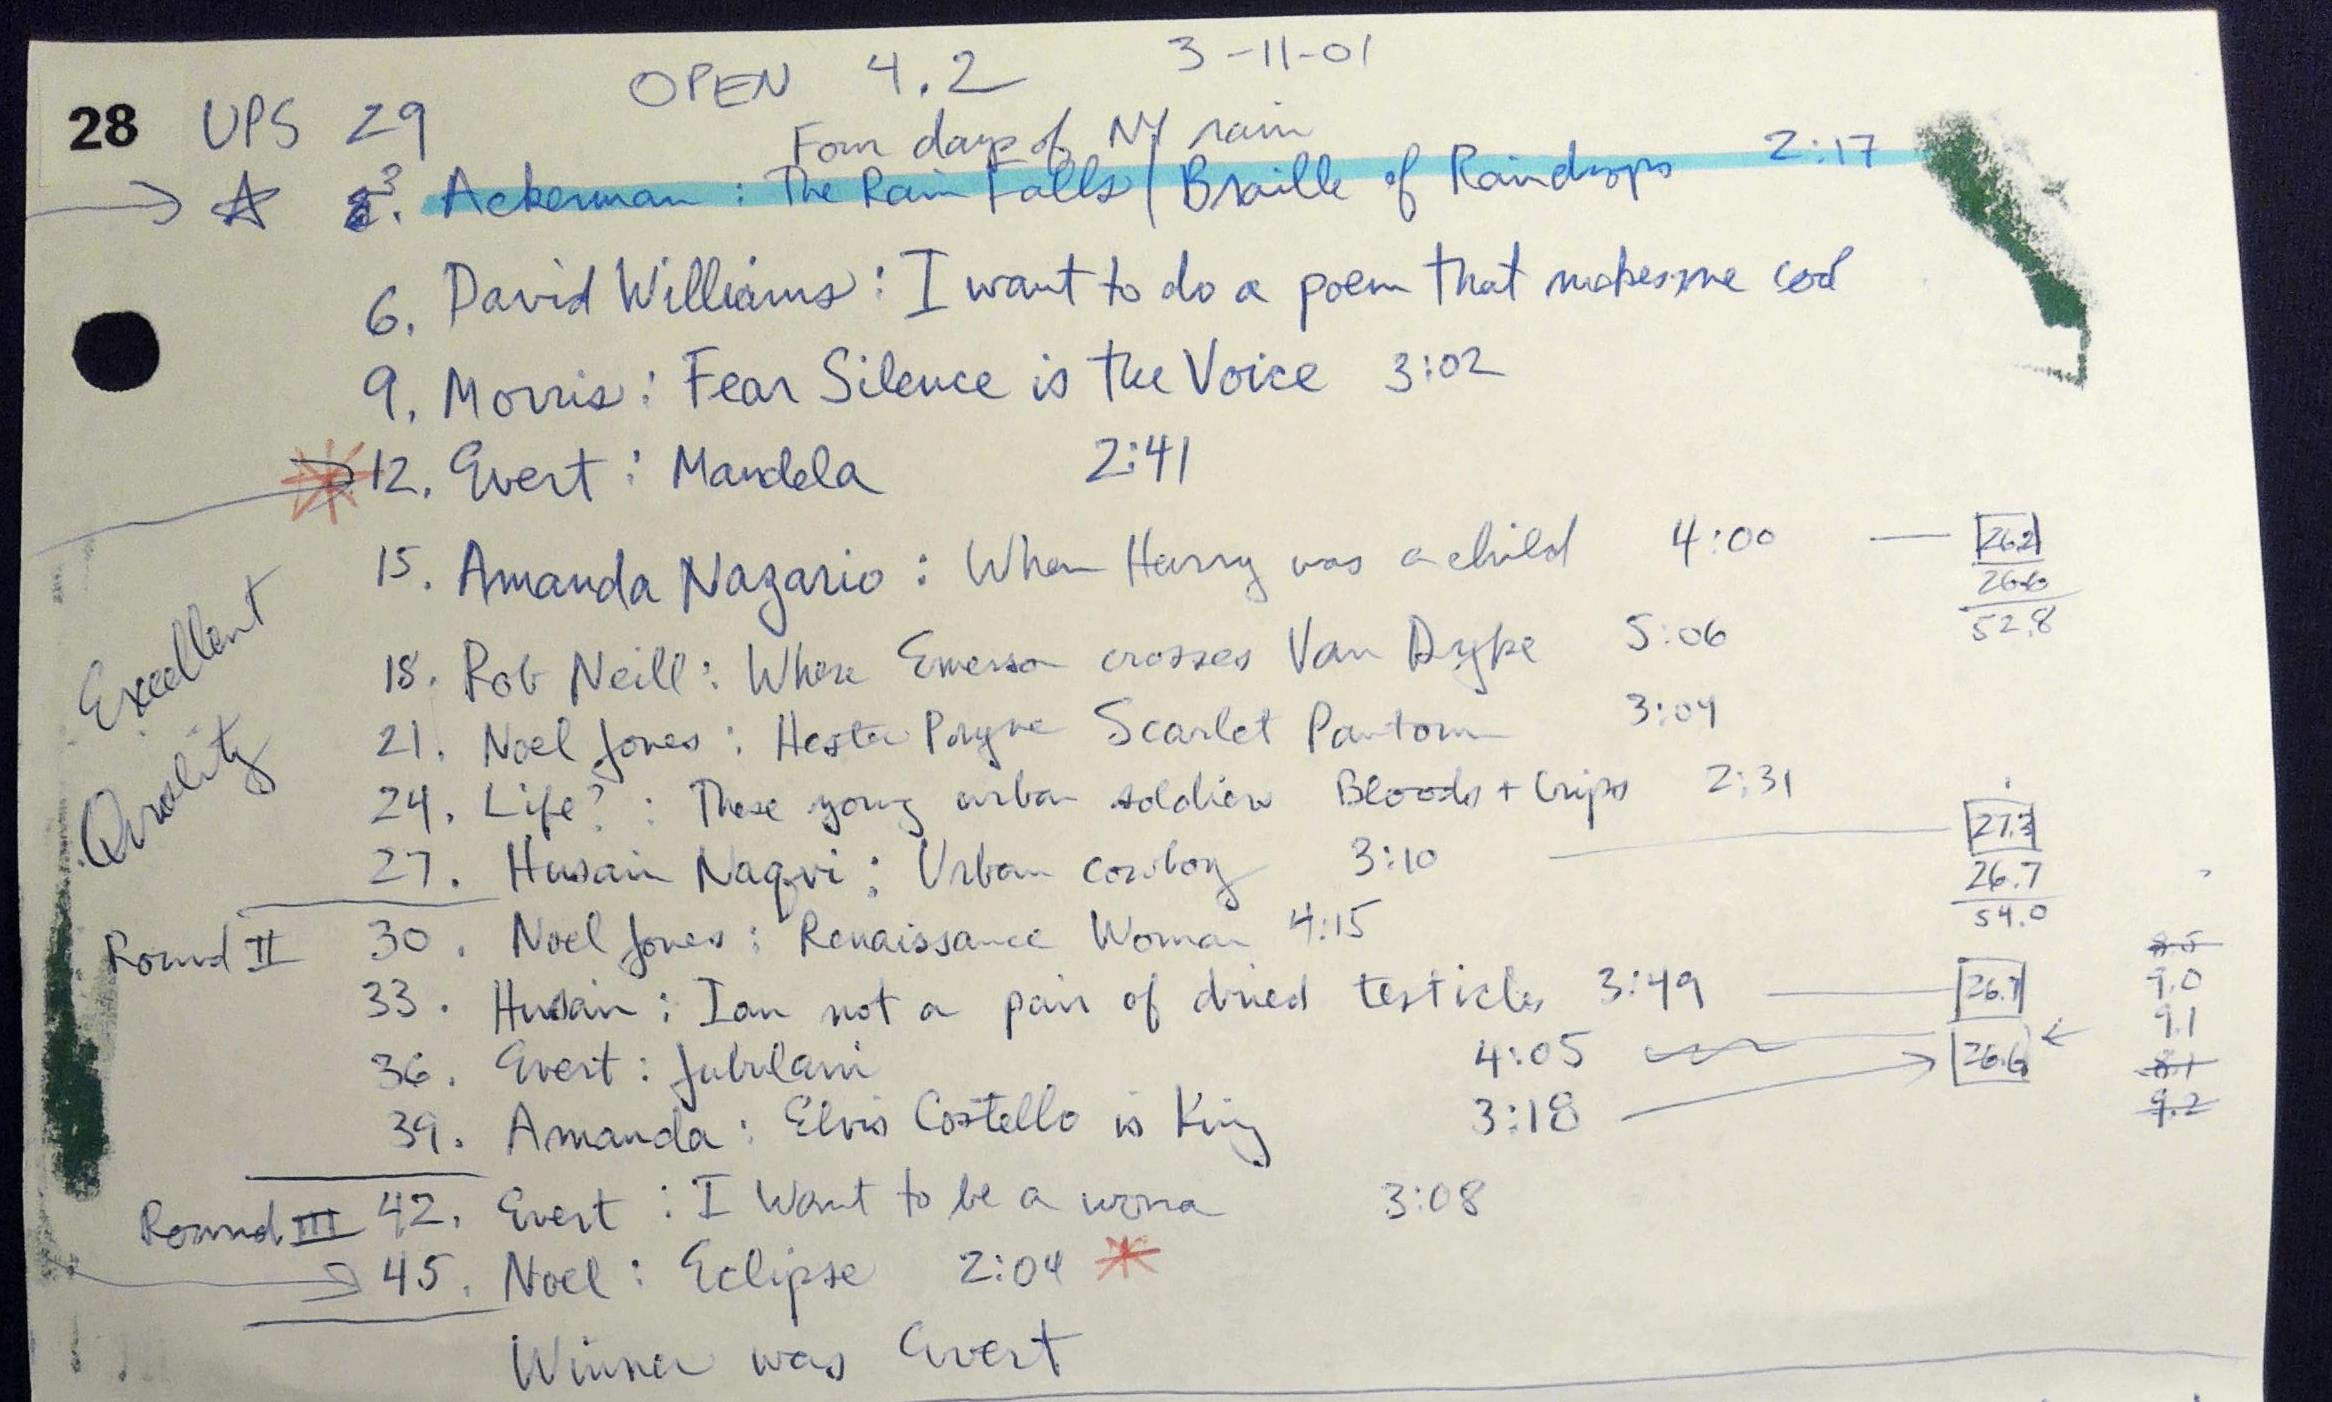 OPEN 4.2 3-11-01
28 UPS 29
Four days of NY rain
3. Ackerman: The Rain Falls / Braille of Raindrops 2:17
6. David Williams: I want to do a poem that makes me cool
9. Morris: Fear Silence is the Voice 3:02
12. Evert: Mandela 2:41
15. Amanda Nazario: When Harry was a child 4:00 — 26.2
26.6
52.8
18. Rob Neill: Where Emerson crosses Van Dyke 5:06
21. Noel Jones: Hester Prynne Scarlet Pantoum 3:04
24. Life?: These young urban soldiers Bloods + Crips 2:31
27. Husain Naqvi: Urban cowboy 3:10 — 27.3
26.7
54.0
Excellent
Quality
Round II 30. Noel Jones: Renaissance Woman 4:15
33. Husain: I am not a pair of dried testicles 3:49 — 26.7
36. Evert: Jubilani 4:05
39. Amanda: Elvis Costello is King 3:18 → 26.6 ←
8.5
9.0
9.1
8.1
9.2
Round III 42. Evert: I Want to be a 3:08
45. Noel: Eclipse 2:04 *
Winner was Evert